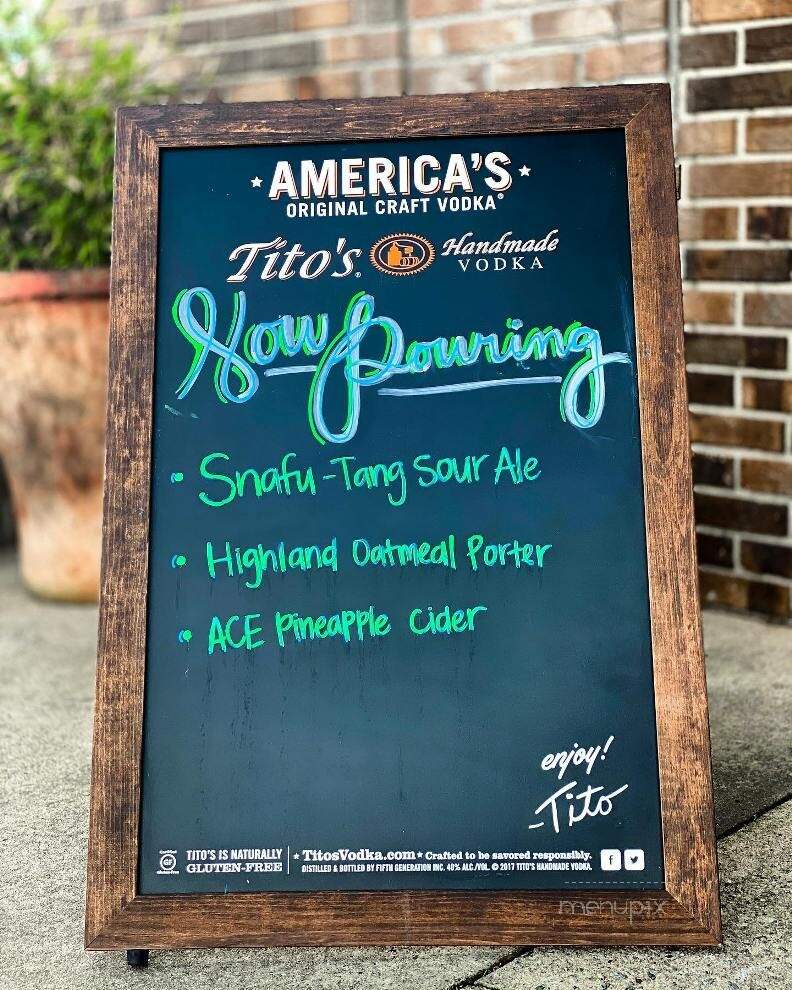 AMERICA'S
ORIGINAL CRAFT VODKA®
Tito's® Handmade
VODKA
Now Pouring
• Snafu-Tang Sour Ale
• Highland Oatmeal Porter
• ACE Pineapple Cider
enjoy!
-Tito
Certified
GF
Gluten-Free
TITO'S IS NATURALLY
GLUTEN-FREE
★ TitosVodka.com ★ Crafted to be savored responsibly.
DISTILLED & BOTTLED BY FIFTH GENERATION INC. 40% ALC./VOL. © 2017 TITO'S HANDMADE VODKA.
f
menupix